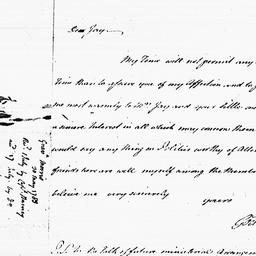 Dear Jay,
My Time will not permit any
Time than to assure you of my Affection and to
me most warmly to Mrs Jay and your little
a sincere Interest in all which may concern them
would say any thing on Politics worthy of Atten
friends here are well myself among the Number
believe me very sincerely
yours
P.S. In the talk of future ministerial Arrangeme
Gouvr Morris
10 May 1783
Recd July by Capt Barney